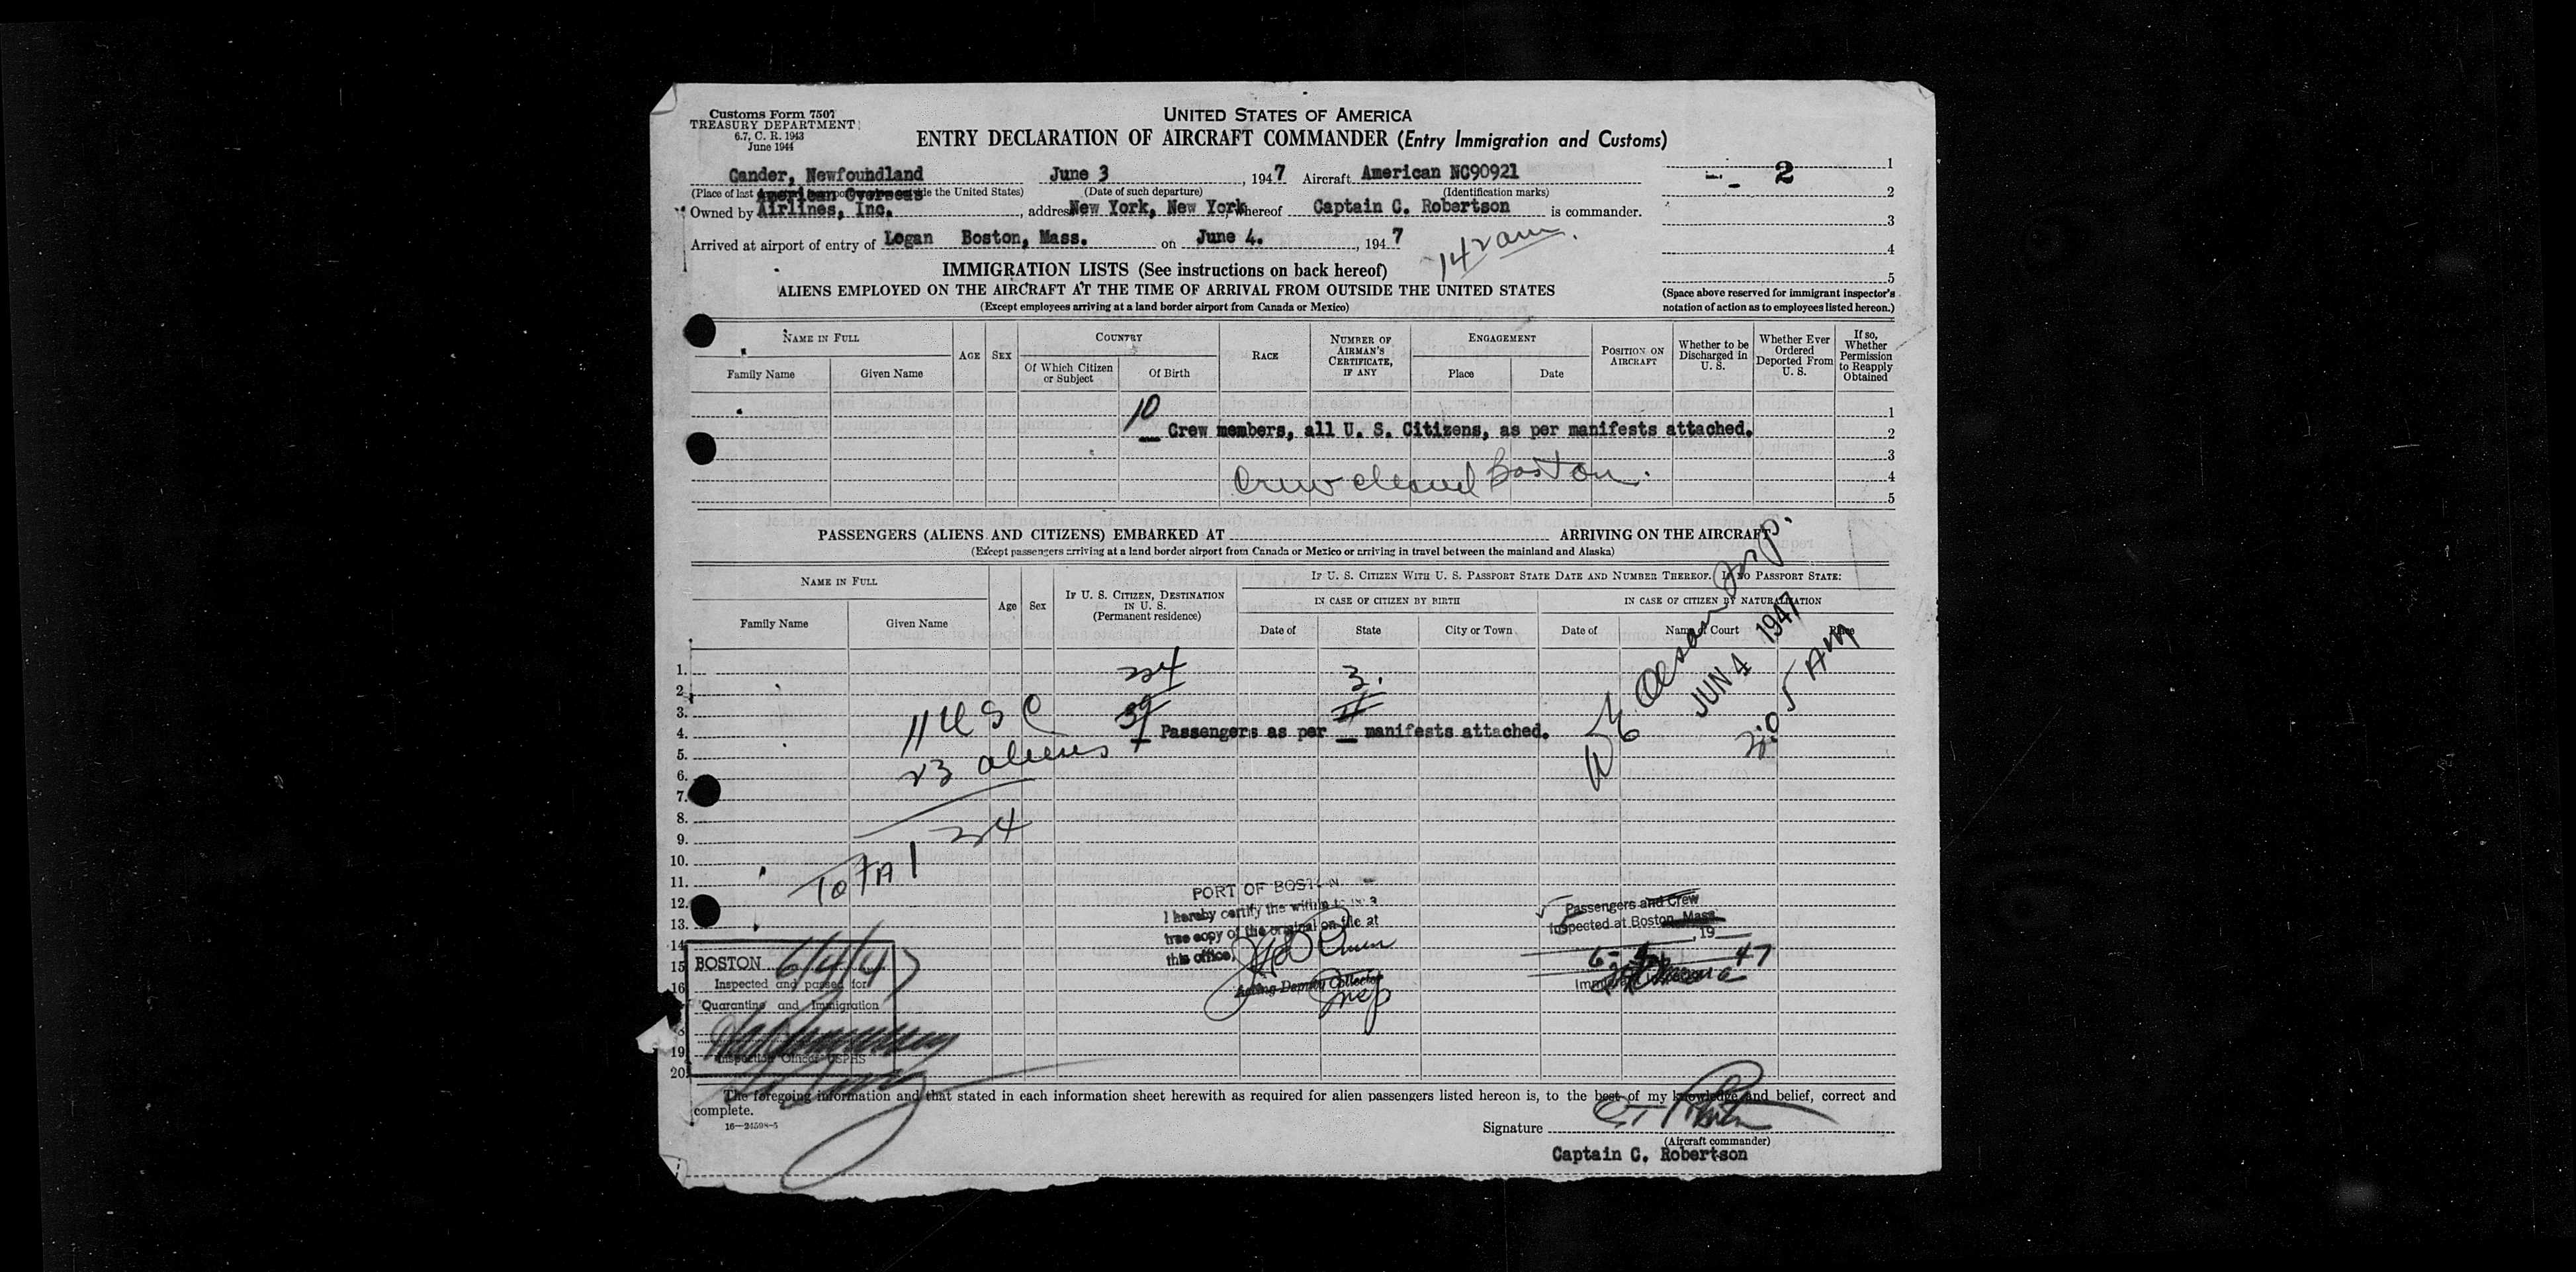 Customs Form 7507
TREASURY DEPARTMENT
6.7, C. R. 1943
June 1944
UNITED STATES OF AMERICA
ENTRY DECLARATION OF AIRCRAFT COMMANDER (Entry Immigration and Customs)
Gander, Newfoundland June 3, 1947 Aircraft American NC90921
(Place of last the United States) (Date of such departure) (Identification marks)
American Overseas
Owned by Airlines, Inc., address New York, New York whereof Captain C. Robertson is commander.
Arrived at airport of entry of Logan Boston, Mass. on June 4, 1947
142 am
- 2
1
2
3
4
5
(Space above reserved for immigrant inspector's
notation of action as to employees listed hereon.)
IMMIGRATION LISTS (See instructions on back hereof)
ALIENS EMPLOYED ON THE AIRCRAFT AT THE TIME OF ARRIVAL FROM OUTSIDE THE UNITED STATES
(Except employees arriving at a land border airport from Canada or Mexico)
NAME IN FULL
Family Name Given Name
AGE SEX
COUNTRY
Of Which Citizen or Subject
Of Birth
RACE
NUMBER OF AIRMAN'S CERTIFICATE, IF ANY
ENGAGEMENT
Place Date
POSITION ON AIRCRAFT
Whether to be Discharged in U. S.
Whether Ever Ordered Deported From U. S.
If so, Whether Permission to Reapply Obtained
1
10
Crew members, all U. S. Citizens, as per manifests attached.
2
3
Crew cleared Boston.
4
5
PASSENGERS (ALIENS AND CITIZENS) EMBARKED AT ARRIVING ON THE AIRCRAFT
(Except passengers arriving at a land border airport from Canada or Mexico or arriving in travel between the mainland and Alaska)
NAME IN FULL
Family Name Given Name
Age Sex
IF U. S. CITIZEN, DESTINATION IN U. S.
(Permanent residence)
IF U. S. CITIZEN WITH U. S. PASSPORT STATE DATE AND NUMBER THEREOF. IF NO PASSPORT STATE:
IN CASE OF CITIZEN BY BIRTH
IN CASE OF CITIZEN BY NATURALIZATION
Date of State City or Town Date of Name of Court Place
1.
2.
3.
4.
5.
6.
7.
8.
9.
10.
11.
12.
13.
14
15
16
19
20
34 3.
39
Passengers as per manifests attached.
11 U S C
23 aliens
34
Total
Olson Insp.
JUN 4 1947
2:05 AM
PORT OF BOSTON
I hereby certify the within to be a
true copy of the original on file at
this office.
Acting Deputy Collector
Insp
Passengers and Crew
Inspected at Boston, Mass.
, 19
6- 47
BOSTON 6/4/47
Inspected and passed for
Quarantine and Immigration
Inspection Officer USPHS
The foregoing information and that stated in each information sheet herewith as required for alien passengers listed hereon is, to the best of my knowledge and belief, correct and
complete.
16—24598-5
Signature
(Aircraft commander)
Captain C. Robertson